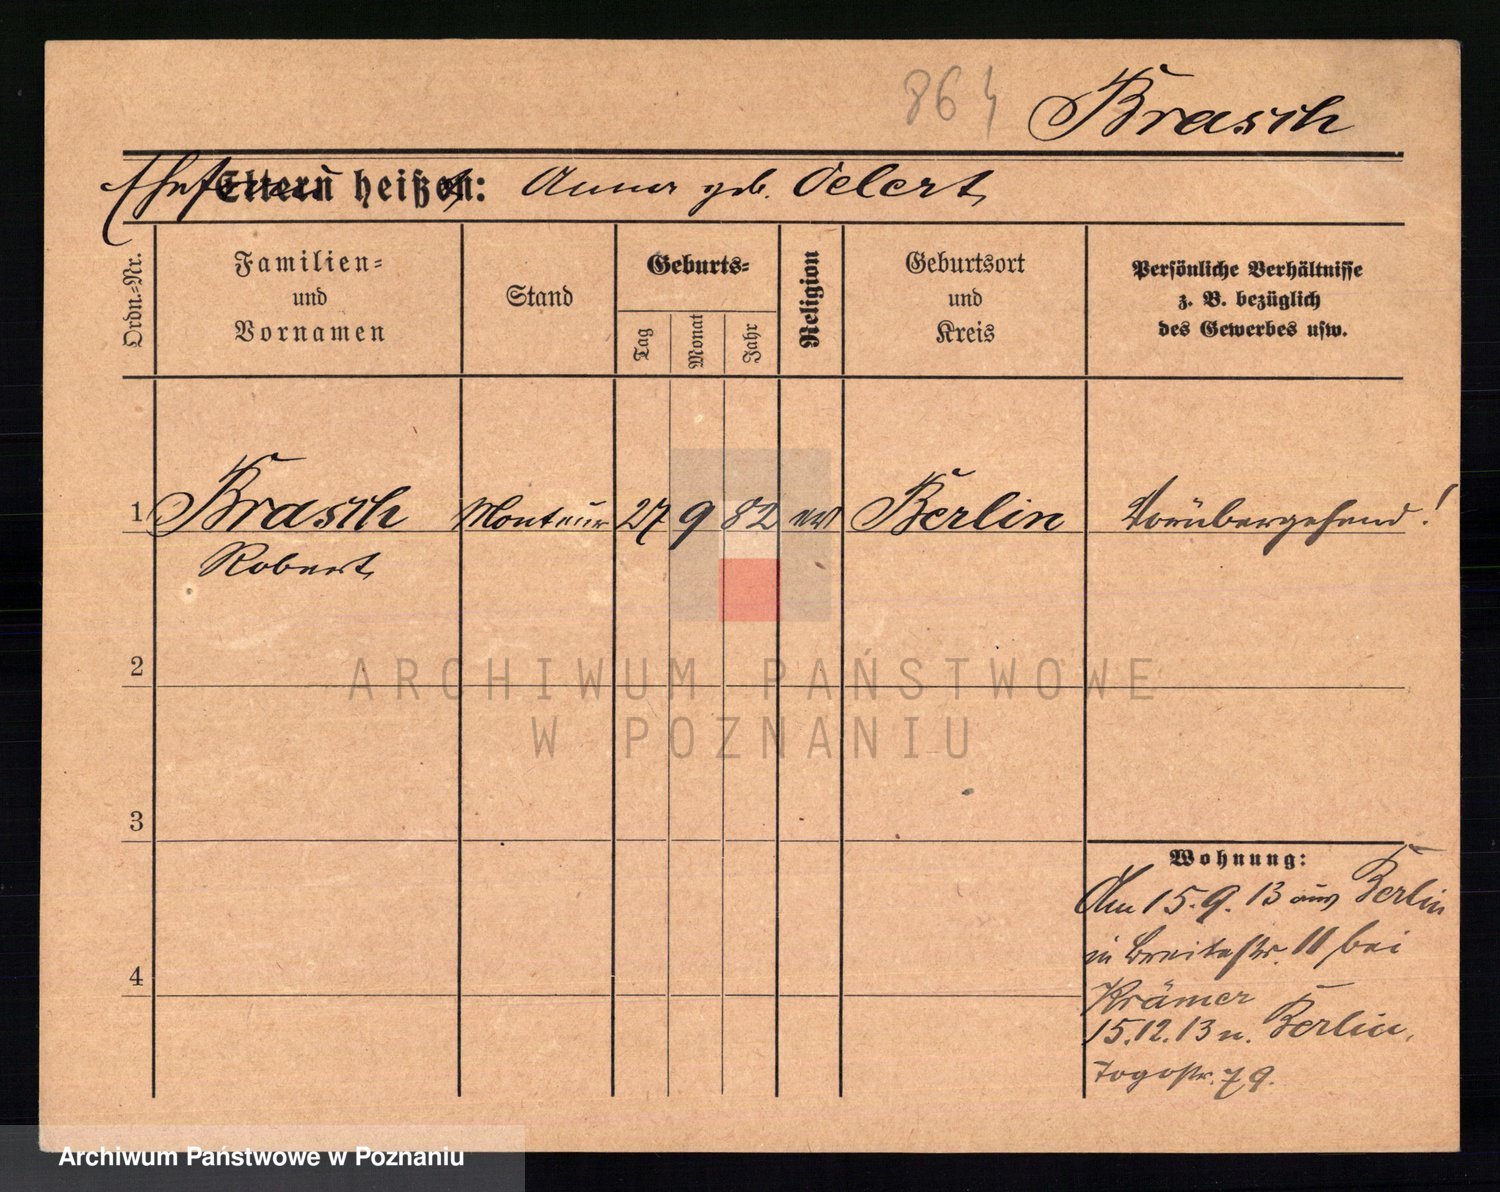 864 Brasch
Ehefrau
Eltern heißen: Anna geb. Oelert
Ordn.-Nr.
Familien-
und
Vornamen
Stand
Geburts-
Tag
Monat
Jahr
Religion
Geburtsort
und
Kreis
Persönliche Verhältnisse
z. B. bezüglich
des Gewerbes usw.
1 Brasch Monteur 27 9 82 ev Berlin Vorübergehend!
Robert
2
3
4
Wohnung:
Am 15.9.13 aus Berlin
in Breitestr. 11 bei
Krämer
15.12.13 n. Berlin,
Togostr. 79.
ARCHIWUM PAŃSTWOWE
W POZNANIU
Archiwum Państwowe w Poznaniu